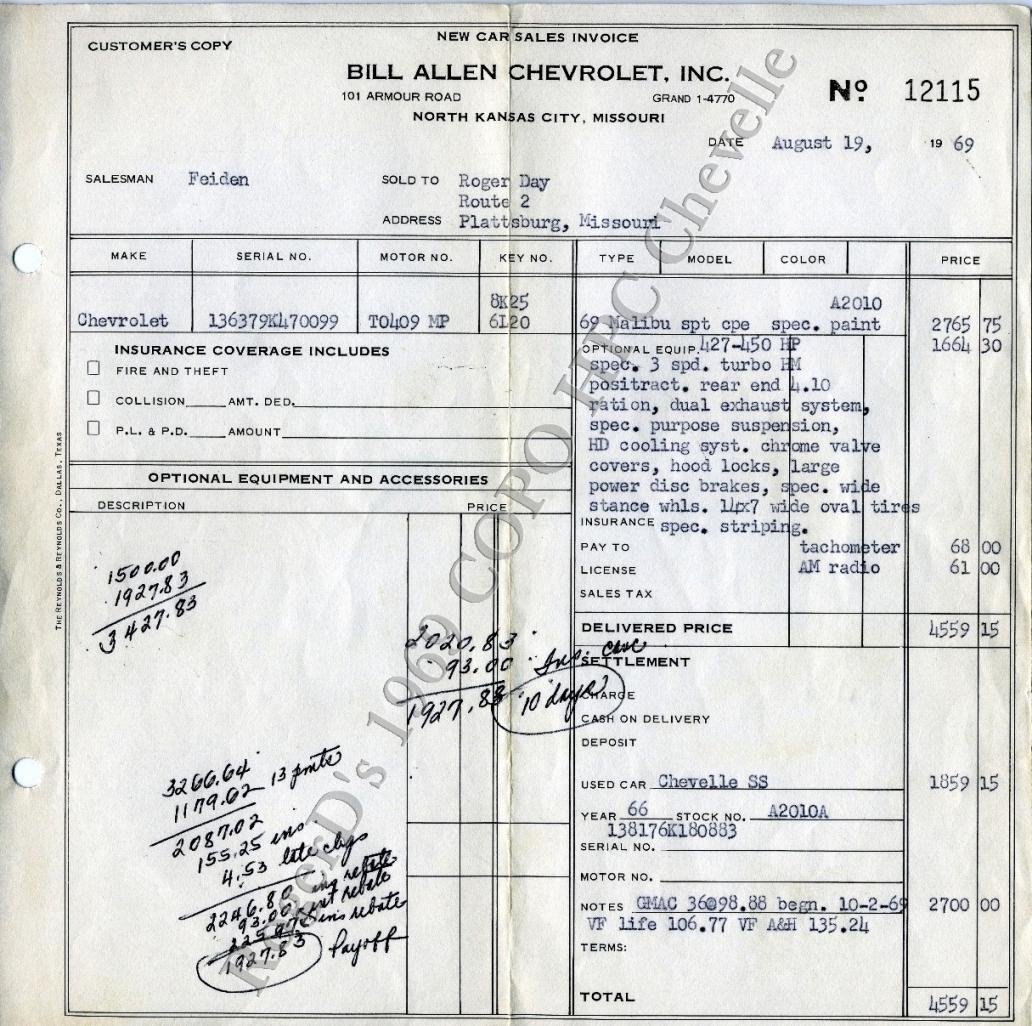 NEW CAR SALES INVOICE
CUSTOMER'S COPY
BILL ALLEN CHEVROLET, INC.
101 ARMOUR ROAD GRAND 1-4770
NORTH KANSAS CITY, MISSOURI
Nº 12115
DATE August 19, 19 69
SALESMAN Feiden
SOLD TO Roger Day
Route 2
ADDRESS Plattsburg, Missouri
MAKE SERIAL NO. MOTOR NO. KEY NO. TYPE MODEL COLOR PRICE
8K25 A2010
Chevrolet 136379K470099 T0409 MP 6L20 69 Malibu spt cpe spec. paint 2765 75
INSURANCE COVERAGE INCLUDES
FIRE AND THEFT
COLLISION AMT. DED.
P.L. & P.D. AMOUNT
OPTIONAL EQUIP. 427-450 HP 1664 30
spec. 3 spd. turbo HM
positract. rear end 4.10
ration, dual exhaust system,
spec. purpose suspension,
HD cooling syst. chrome valve
covers, hood locks, large
power disc brakes, spec. wide
stance whls. 14x7 wide oval tires
INSURANCE spec. striping.
PAY TO tachometer 68 00
LICENSE AM radio 61 00
SALES TAX
DELIVERED PRICE 4559 15
OPTIONAL EQUIPMENT AND ACCESSORIES
DESCRIPTION PRICE
1500.00
1927.83
3427.83
2020.83
93.00 Ins. canc
1927.83 10 days
3266.64 13 pmts
1179.62
2087.02
155.25 ins
4.53 late chgs
2246.80 ins rebate
93.00 int rebate
225.97 ins rebate
1927.83 Payoff
SETTLEMENT
CHARGE
CASH ON DELIVERY
DEPOSIT
USED CAR Chevelle SS 1859 15
YEAR 66 STOCK NO. A2010A
138176K180883
SERIAL NO.
MOTOR NO.
NOTES GMAC 36@98.88 begn. 10-2-69 2700 00
VF life 106.77 VF A&H 135.24
TERMS:
TOTAL 4559 15
THE REYNOLDS & REYNOLDS CO., DALLAS, TEXAS
RogerD's 1969 COPO HPC Chevelle